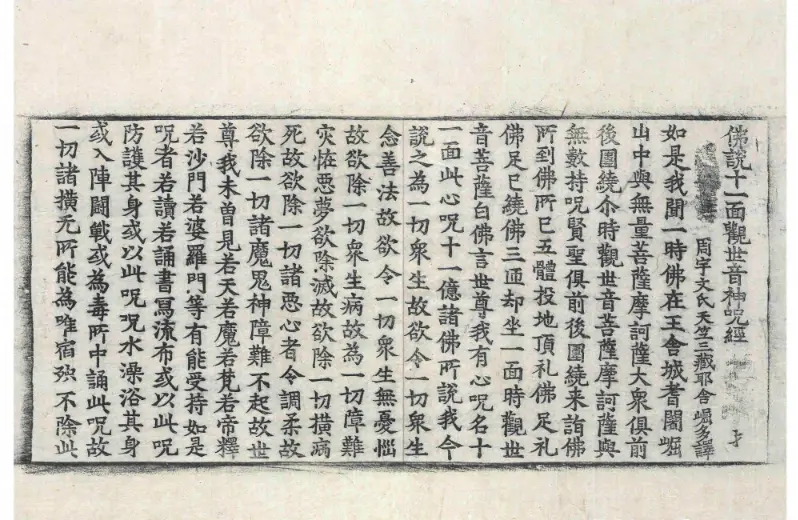 佛說十一面觀世音神呪經 才
周宇文氏天竺三藏耶舍崛多譯
如是我聞一時佛在王舍城耆闍崛
山中與無量菩薩摩訶薩大衆俱前
後圍繞尒時觀世音菩薩摩訶薩與
無數持呪賢聖俱前後圍繞来詣佛
所到佛所已五體投地頂礼佛足礼
佛足已繞佛三匝却坐一面時觀世
音菩薩白佛言世尊我有心呪名十
一面此心呪十一億諸佛所說我今
說之為一切衆生故欲令一切衆生
念善法故欲令一切衆生無憂惱
故欲除一切衆生病故為一切障難
灾恠惡夢欲除滅故欲除一切横病
死故欲除一切諸惡心者令調柔故
欲除一切諸魔鬼神障難不起故世
尊我未曽見若天若魔若梵若帝釋
若沙門若婆羅門等有能受持如是
呪者若讀若誦書寫流布或以此呪
防護其身或以此呪呪水澡浴其身
或入陣鬪戰或為毒所中誦此呪故
一切諸横无所能為唯宿殃不除此